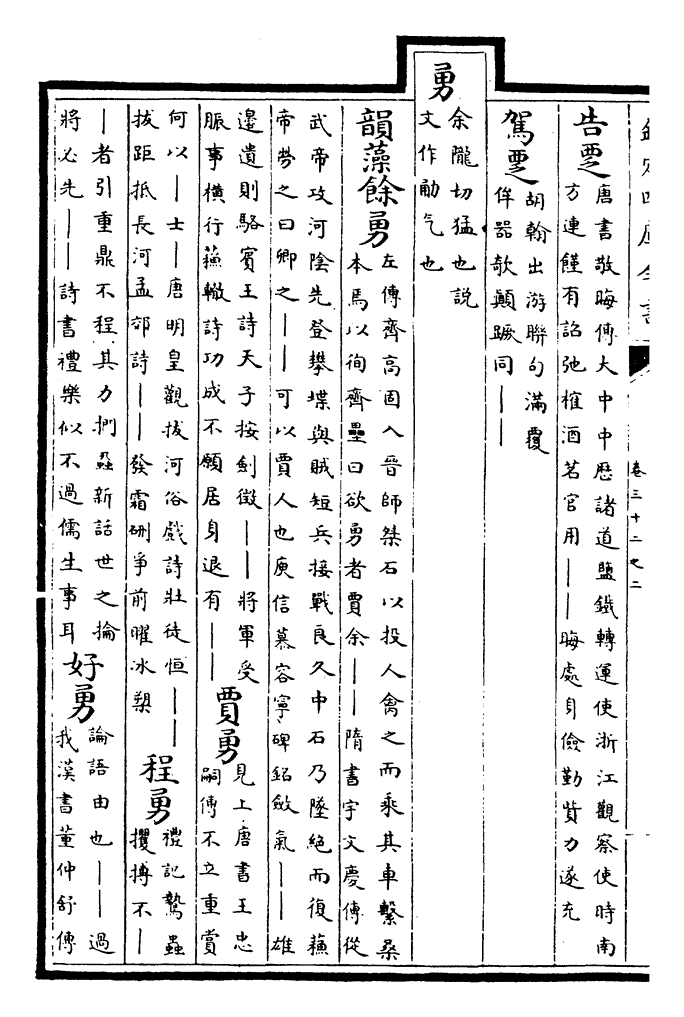 欽定四庫全書
卷三十二之二
告覂
唐書敬晦傳大中中歷諸道鹽鐵轉運使浙江觀察使時南
方連饉有詔弛榷酒茗官用——晦處身儉勤貲力遂充
駕覂
胡翰出游聯句滿覆
侔器欹顛蹶同——
勇
余隴切猛也説
文作勈气也
韻藻餘勇
左傳齊高固入晉師桀石以投人禽之而乘其車繫桑
本焉以徇齊壘曰欲勇者賈余——隋書宇文慶傳從
武帝攻河陰先登攀堞與賊短兵接戰良久中石乃墜絕而復蘓
帝勞之曰卿之——可以賈人也庾信慕容寧碑銘斂氣——雄
邊遺則駱賓王詩天子按劍徵——將軍受
脤事橫行蘓轍詩功成不願居身退有——
賈勇
見上唐書王忠
嗣傳不立重賞
何以—士—唐明皇觀拔河俗戲詩壯徒恒——
拔距抵長河孟郊詩——發霜硎爭前曜冰槊
程勇
禮記鷙蟲
攫搏不—
—者引重鼎不程其力捫蝨新話世之掄
將必先——詩書禮樂似不過儒生事耳
好勇
論語由也——過
我漢書董仲舒傳